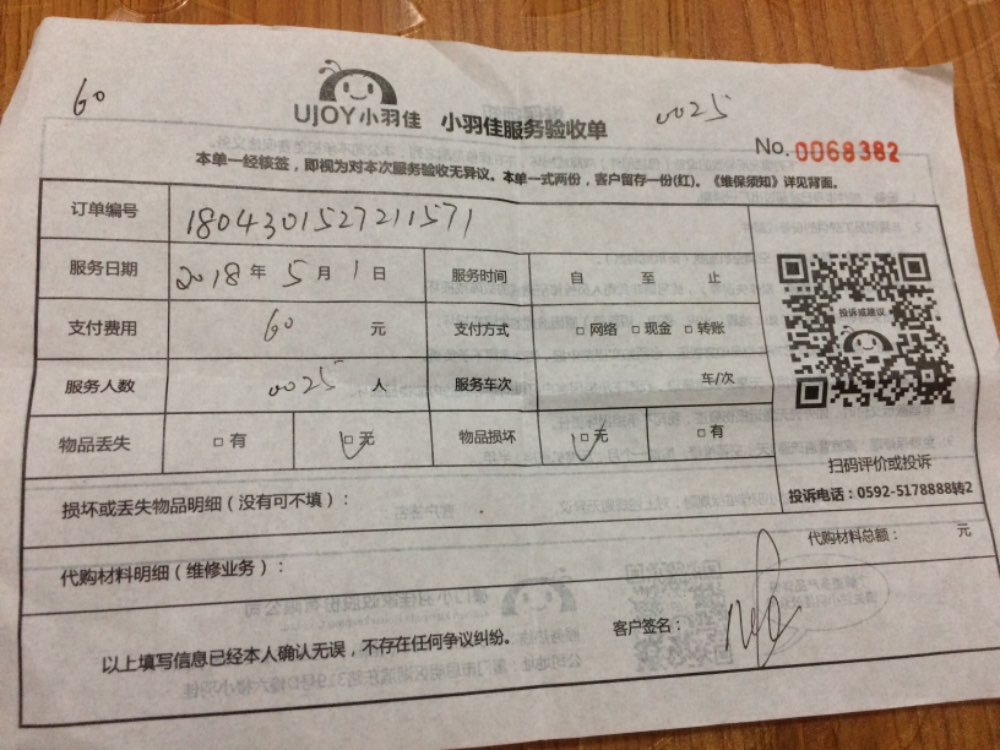 60
0025
UJOY小羽佳 小羽佳服务验收单
No. 0068382
本单一经核签，即视为对本次服务验收无异议。本单一式两份，客户留存一份(红)。《维保须知》详见背面。
订单编号 1804301527211571
服务日期 2018 年 5 月 1 日 服务时间 自 至 止
支付费用 60 元 支付方式 □ 网络 □ 现金 □ 转账
服务人数 0025 人 服务车次 车/次
物品丢失 □ 有 □ 无 物品损坏 □ 无 □ 有
投诉或建议
扫码评价或投诉
投诉电话：0592-5178888转2
损坏或丢失物品明细（没有可不填）：
代购材料总额： 元
代购材料明细（维修业务）：
客户签名：
以上填写信息已经本人确认无误，不存在任何争议纠纷。